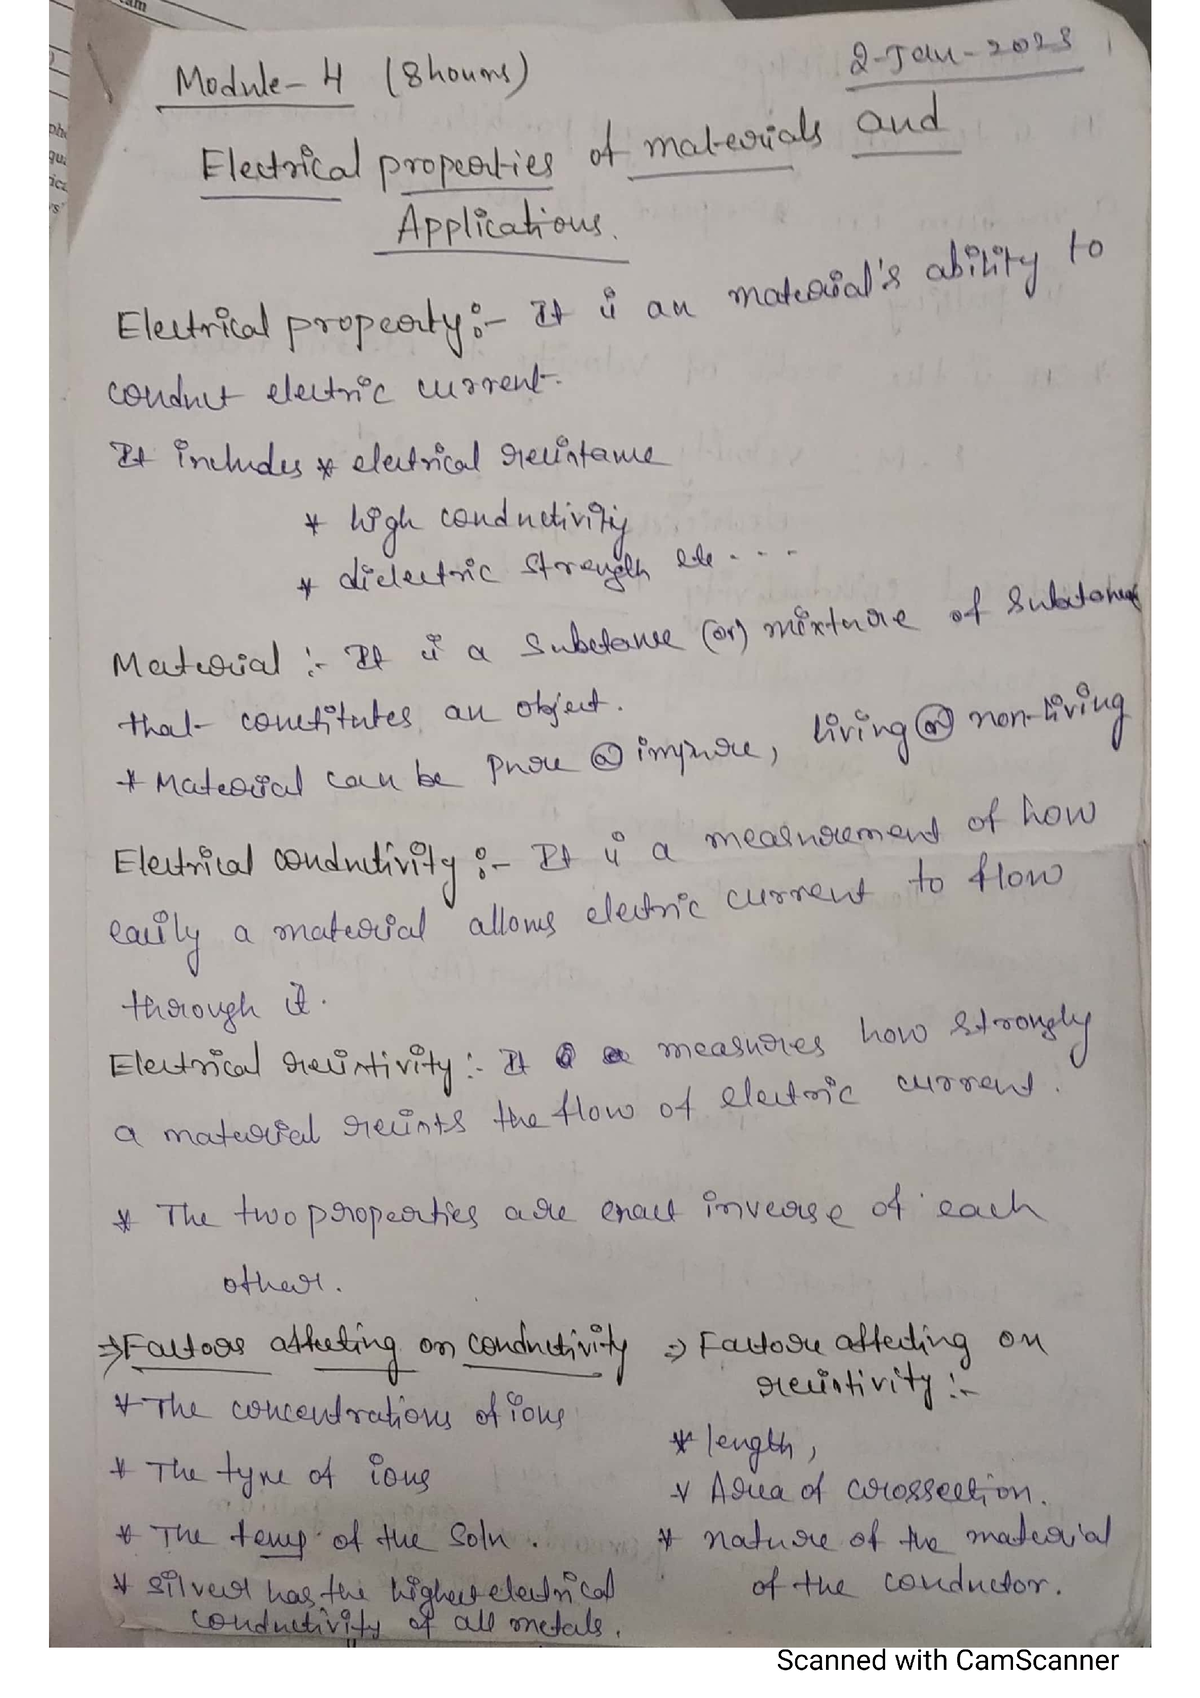 Module-4 (8hours)
2-Jan-2023
Electrical properties of materials and
Applications.
Electrical property:- It is an material's ability to
conduct electric current.
It includes * electrical resistance
* high conductivity
* dielectric strength etc - - -
Material :- It is a substance (or) mixture of substances
that constitutes an object.
* Material can be pure or impure, living or non-living
Electrical conductivity :- It is a measurement of how
easily a material allows electric current to flow
through it.
Electrical resistivity :- It measures how strongly
a material resists the flow of electric current.
* The two properties are exact inverse of each
other.
⇒ Factors affecting on conductivity
* The concentrations of ions
* The type of ions
* The temp of the soln.
* silver has the highest electrical
conductivity of all metals.
⇒ Factors affecting on
resistivity :-
* length,
* Area of crossection.
* nature of the material
of the conductor.
Scanned with CamScanner